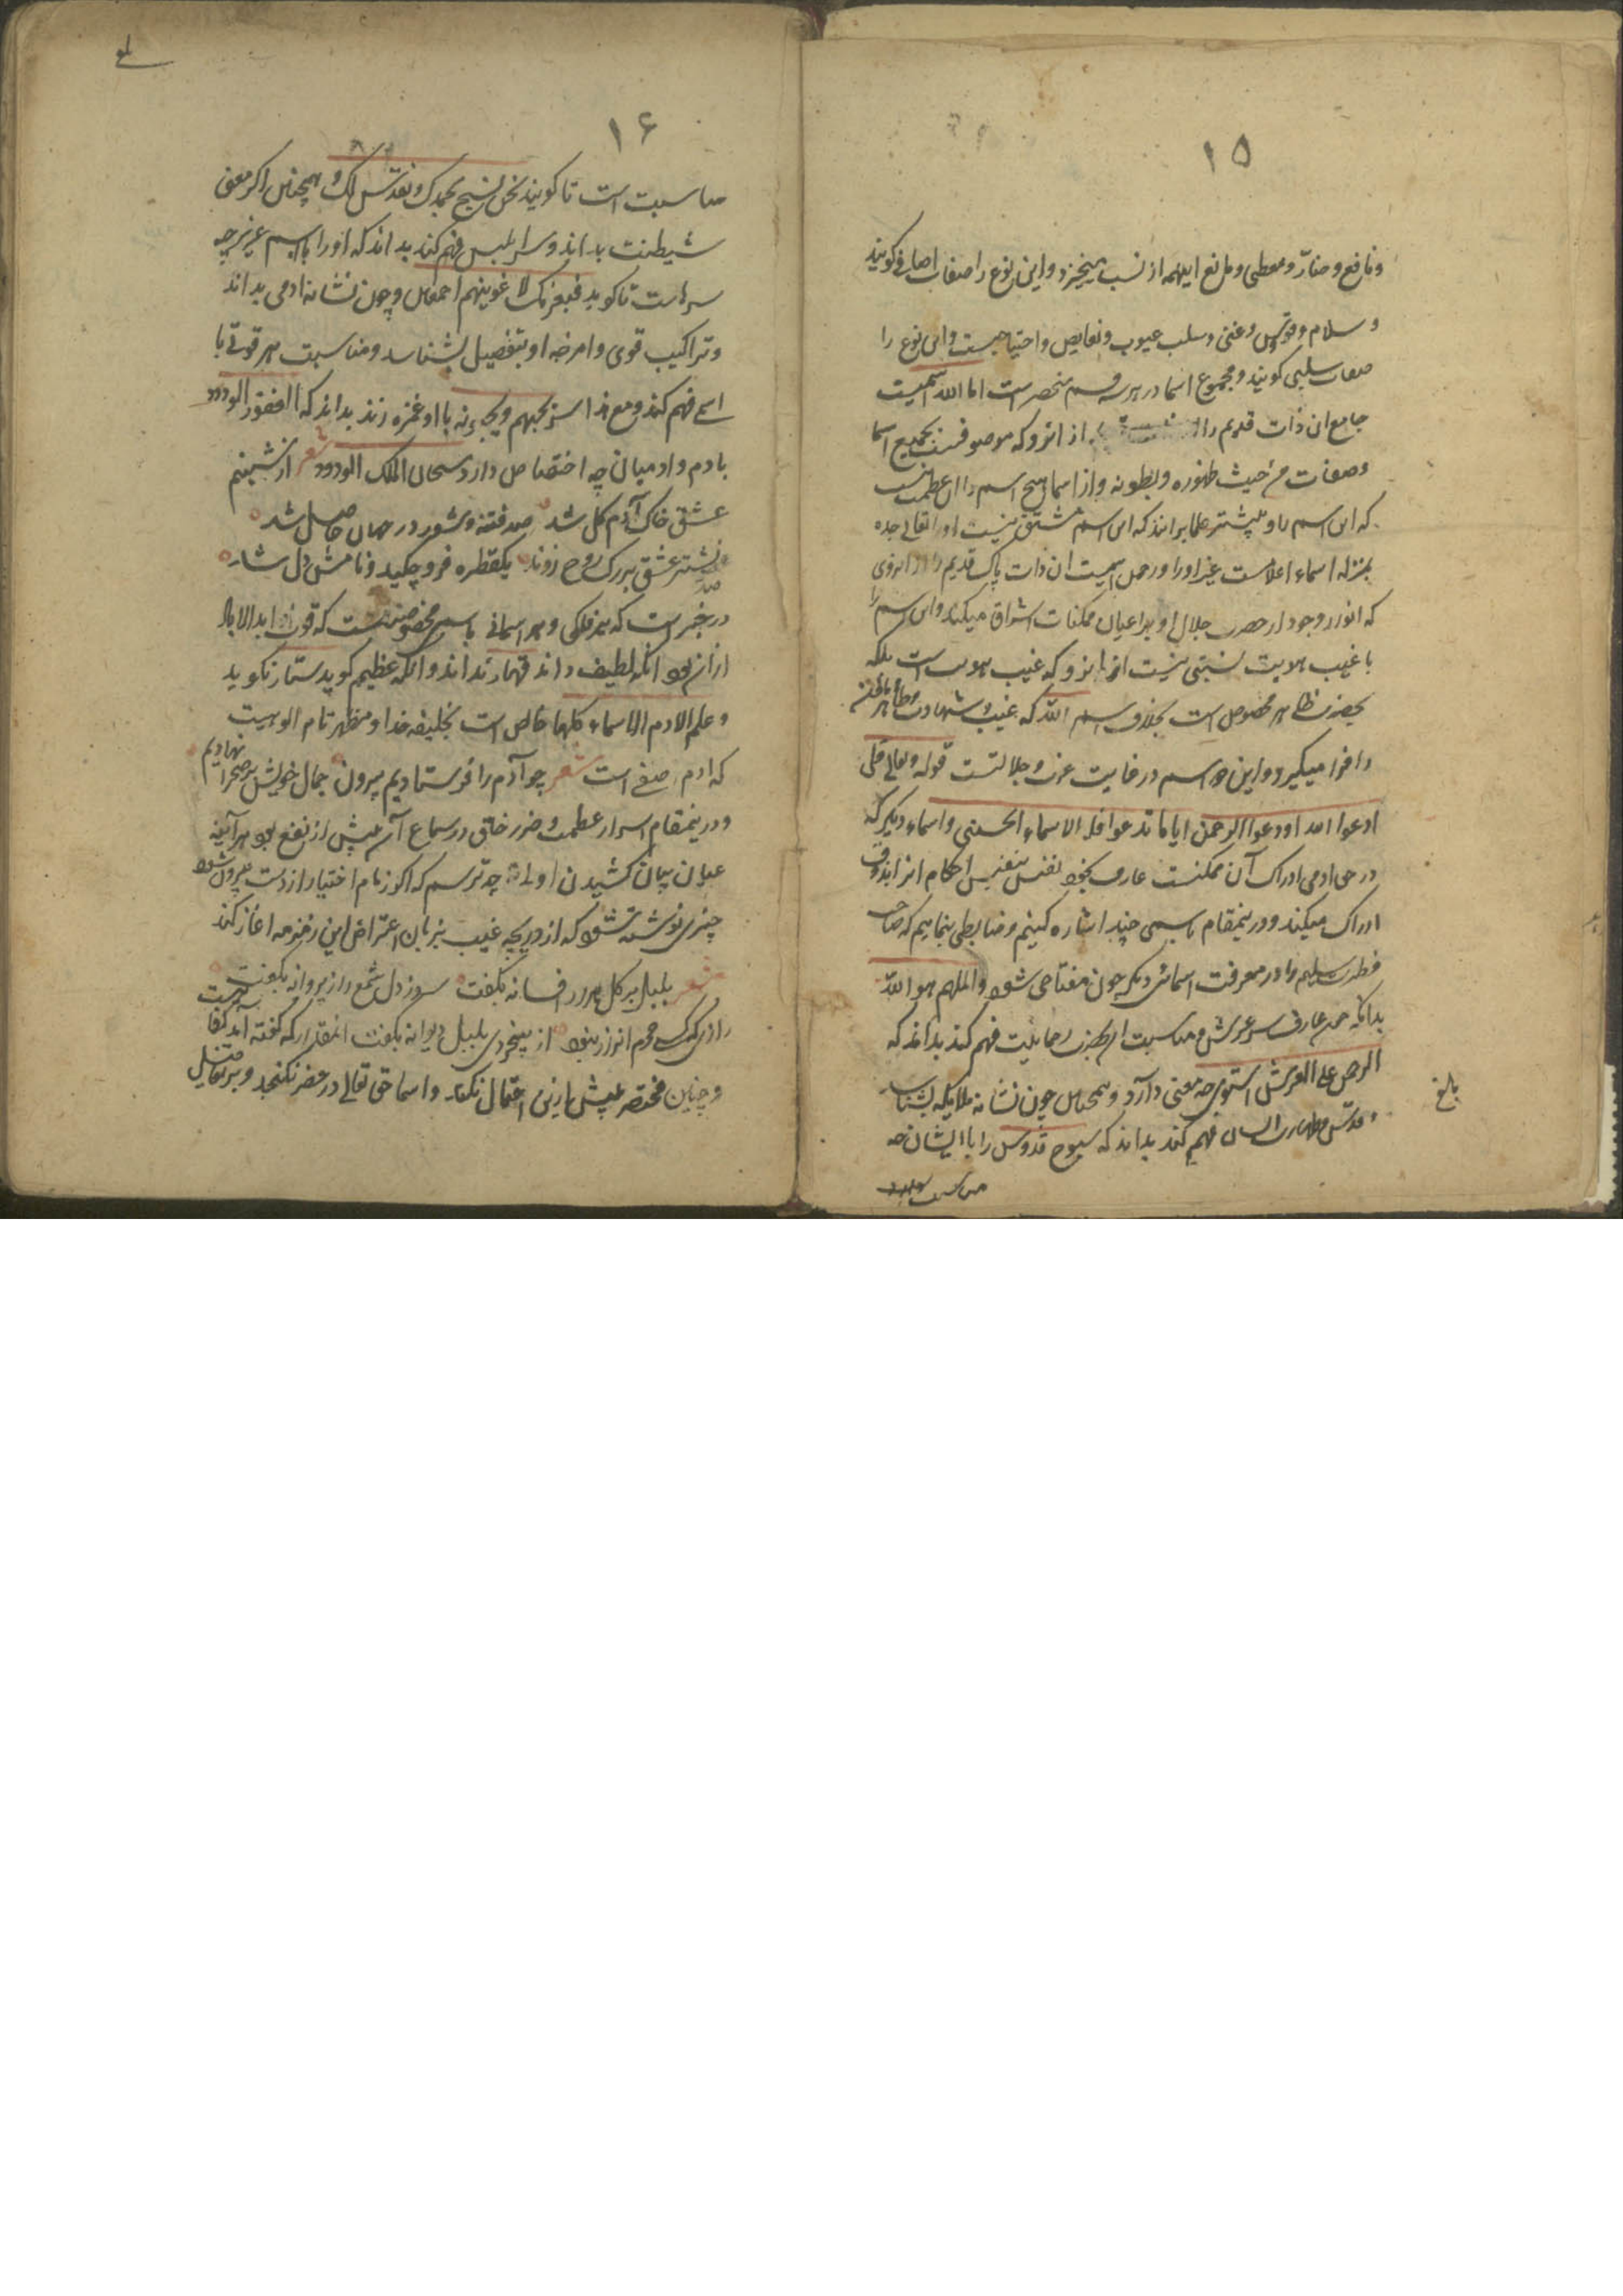 ۱۵
و نافع و ضارّ و معطی و مانع اینهمه از نسب میخیزد و این نوع را صفات اضافی گویند
و سلام و قدوس و غنی و سلب عیوب و نقایص و احتیاجست و این نوع را
صفات سلبی گویند و مجموع اسما در هر سه قسم منحصر است اما الله اسمیست
جامع ان ذات قدیم را از انرو که موصوفست بجمیع اسما
و صفات من حیث ظهوره و بطونه و از اسما هیچ اسم را این عظمت نیست
که این اسم را و بیشتر علما برانند که این اسم مشتق نیست او را تعالی جده
بمنزله اسماء اعلامست غیر او را و رحمن اسمیست ان ذات پاک قدیم را از انروی
که انوار وجود از حضرت جلال او بر اعیان ممکنات اشراق میکند و این اسم را
با غیب هویت نسبتی نیست از انرو که غیب هویت است بلکه
بحضرت ظاهر مخصوص است بخلاف اسم الله که غیب و شهادت و ظاهر و باطن
را فرا میگیرد و این دو اسم در غایت عزت و جلالتست قوله تعالی قل
ادعوا الله او ادعوا الرحمن ایاما تدعوا فله الاسماء الحسنی و اسماء دیگر که
در حق ادمی ادراک آن ممکنست عارف بخود نفس بنفس احکام انرا بذوق
ادراک میکند و درینمقام باسمی چند اشاره کنیم و ضابطی بنماییم که صاحب
فطرت سلیم را در معرفت اسمائی دیگر چون مفتاحی شود و الملهم هو الله
بدانکه چون عارف سر عرش و مناسبت ان بحضرت رحمانیت فهم کند بداند که
الرحمن علی العرش استوی چه معنی دارد و همچنین چون نشانه ملایکه بشناسد
و قدس و طهارت ایشان فهم کند بداند که سبوح قدوس را با ایشان چه
مناسبت است
بالغ
۱۶
مناسبت است تا گویند نحن نسبح بحمدک و نقدس لک و همچنین اگر معنی
شیطنت بداند و سر ابلیس فهم کند بداند که او را با اسم عزیز چه
سر است تا گوید فبعزتک لاغوینهم اجمعین و چون نشانه ادمی بداند
و تراکیب قوی و امزجه او بتفصیل بشناسد و مناسبت هر قوتی با
اسمی فهم کند و مع هذا سر یحبهم و یحبونه با او غمزه زند بداند که الغفور الودود
بادم و ادمیان چه اختصاص دارد سبحان الملک الودود شعر از شبنم
عشق خاک آدم گل شد صد فتنه و شور در جهان حاصل شد
صد نشتر عشق بر رگ روح زدند یکقطره فرو چکید و نامش دل شد
در خبر است که هر فلکی و هر اسمانی باسمی مخصوصست که قوت ابد الاباد
ازان بود انکه لطیف داند قهار نداند و انکه عظیم گوید ستار نگوید
و علم الادم الاسماء کلها خالص است بخلیفه خدا و مظهر تام الوهیت
که ادم صفی است شعر چو آدم را فرستادیم بیرون جمال خویش بر صحرا نهادیم
و درینمقام اسرار عظمت و ضرر خلق در سماع آن بیش از نفع بود هر آینه
عنان بیان کشیدن اولی چه ترسم که اگر زمام اختیار از دست بیرون شود
چیزی نوشته شود که از دریچه غیب بزبان اعتراض این زمزمه اغاز کند
شعر بلبل بر گل هزار افسانه بگفت سوز دل شمع را ز پروانه بگفت
رازی که کس محرم انراز نبود از بیخردی بلبل دیوانه بگفت انقدر که گفته اند کفایتست
و چنین مختصر بیش ازین احتمال نکند و اسما حق تعالی در حصر نگنجد و بر تفاصیل